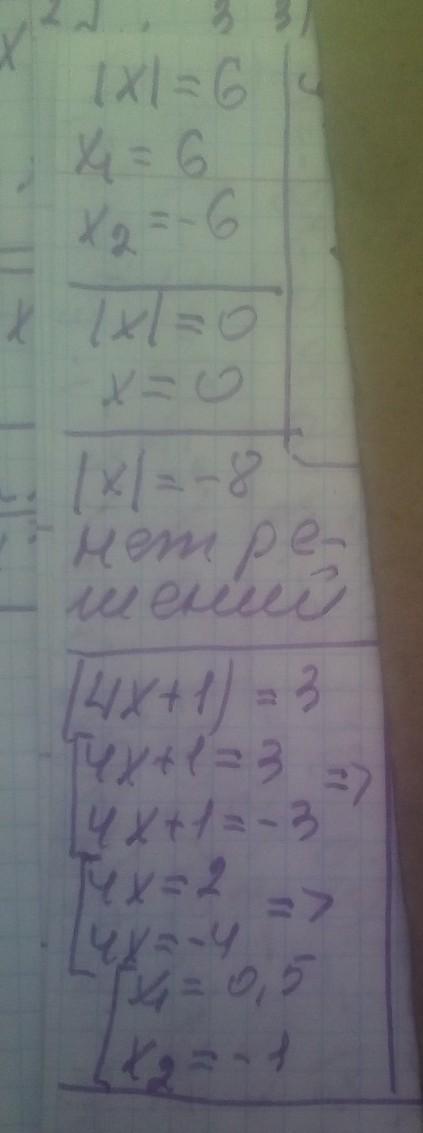 |x| = 6
x₁ = 6
x₂ = -6
|x| = 0
x = 0
|x| = -8
нет ре-
шений
|4x+1| = 3
[4x+1 = 3 =>
4x+1 = -3
[4x = 2 =>
4x = -4
[x₁ = 0,5
x₂ = -1